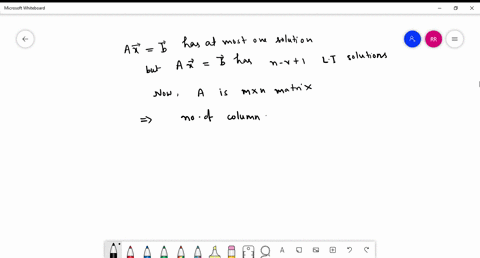 Microsoft Whiteboard
RR
A x⃗ = b⃗ has at most one solution
but A x⃗ = b⃗ has n-r+1 LI solutions
Now, A is m×n matrix
⇒ no. of column